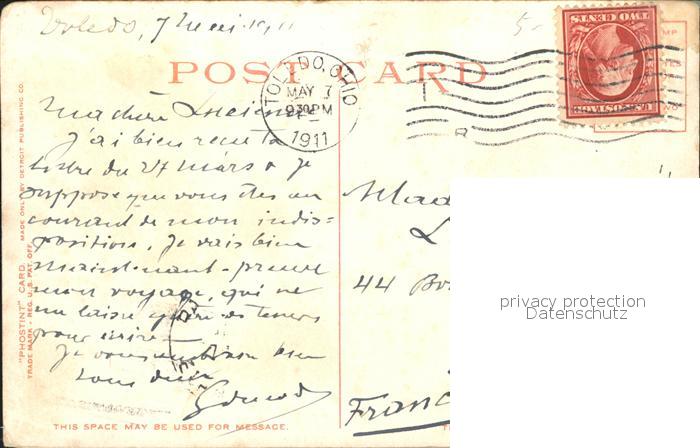 Toledo, 7 Mai 1911
POST CARD
TOLEDO, OHIO
MAY 7
9 30 PM
1911
TWO CENTS
Ma chère Lucienne
J'ai bien reçu ta
lettre du 27 mars & je
suppose que vous êtes au
courant de mon indis=
position. Je vais bien
maintenant
mon voyage, qui ne
me laisse guère de temps
pour écrire.
Je vous embrasse bien
tous deux
Edmond
Mad
L
44 Bo
Franc
privacy protection
Datenschutz
"PHOSTINT" CARD. MADE ONLY BY DETROIT PUBLISHING CO.
TRADE MARK - REG. U.S. PAT. OFF.
THIS SPACE MAY BE USED FOR MESSAGE.